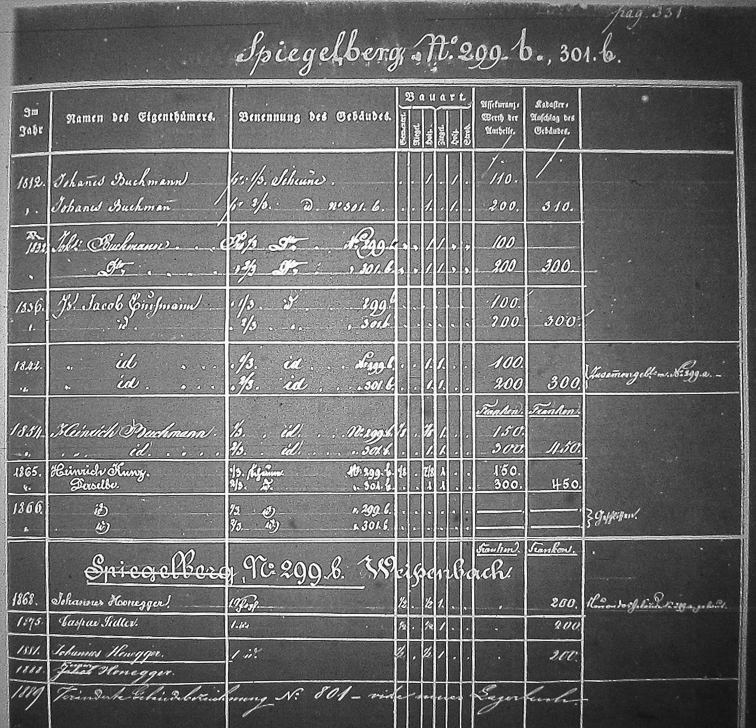 pag. 331
Spiegelberg, No. 299 b., 301. b.
Im Jahr
Namen des Eigenthümers.
Benennung des Gebäudes.
Bauart.
Assekuranz-Werth der Antheile.
Kadaster-Anschlag des Gebäudes.
Gemauert. Riegel. Holz. Ziegel. Holz. Stroh.
1812. Johanes Buchmann 1/3. Scheune. 1. 1. 110.
" Johanes Buchmann 2/3. d. No 301. b. 1. 1. 200. 310.
1832. Joh: Buchmann 1/3 No. 299 b. 1 1 100
2/3 301. b. 1 1 200 300.
1836. Jacob 1/3 d. 299 b 100.
id. 2/3 301 b 200. 300.
1842. id 1/3. id No. 299. b. 1. 1. 100.
id 2/3. id 301. b. 1. 1. 200 300. Zusammengebt. m. No. 299 a.
Franken. Franken.
1854. Heinrich Buchmann. 1/3. id. No. 299. b. 150.
id. 2/3. id. 301. b. 300. 450.
1865. Heinrich Kunz. 1/3. Scheune. No. 299. b. 1 150.
Derselbe. 2/3. d. 301. b. 1 300. 450.
1866. id 1/3 id 299. b.
id 2/3 id 301. b.
Franken. Franken.
Spiegelberg, No. 299. b. Weißenbach
1868. Johannes Honegger. 1 1/2 1/2 1. 200.
1875. Caspar 1 200
1881. Johannes Honegger. 1 id. 1/2 1/2 1. 200.
1888. Jakob Honegger.
1889 Veränderte Gebäudebezeichnung No. 801 – vide neues Lagerbuch